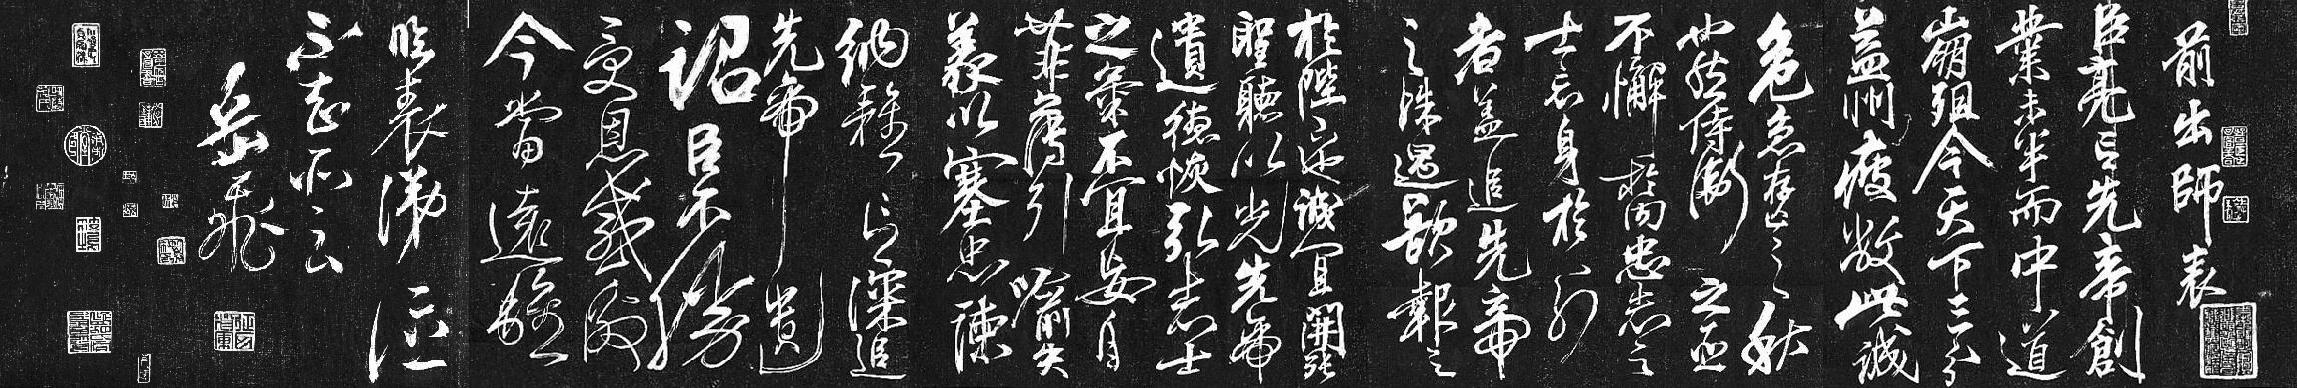 前出師表
臣亮言先帝創
業未半而中道
崩殂今天下三分
益州疲敝此誠
危急存亡之秋
也然侍衛之臣
不懈於内忠志之
士忘身於外
者蓋追先帝
之殊遇欲報之
於陛下誠宜開張
聖聽以光先帝
遺德恢弘志士
之氣不宜妄自
菲薄引喻失
義以塞忠諫
納雅言深追
先帝遺
詔臣不勝
受恩感激
今當遠離
臨表涕泣
不知所云
岳飛